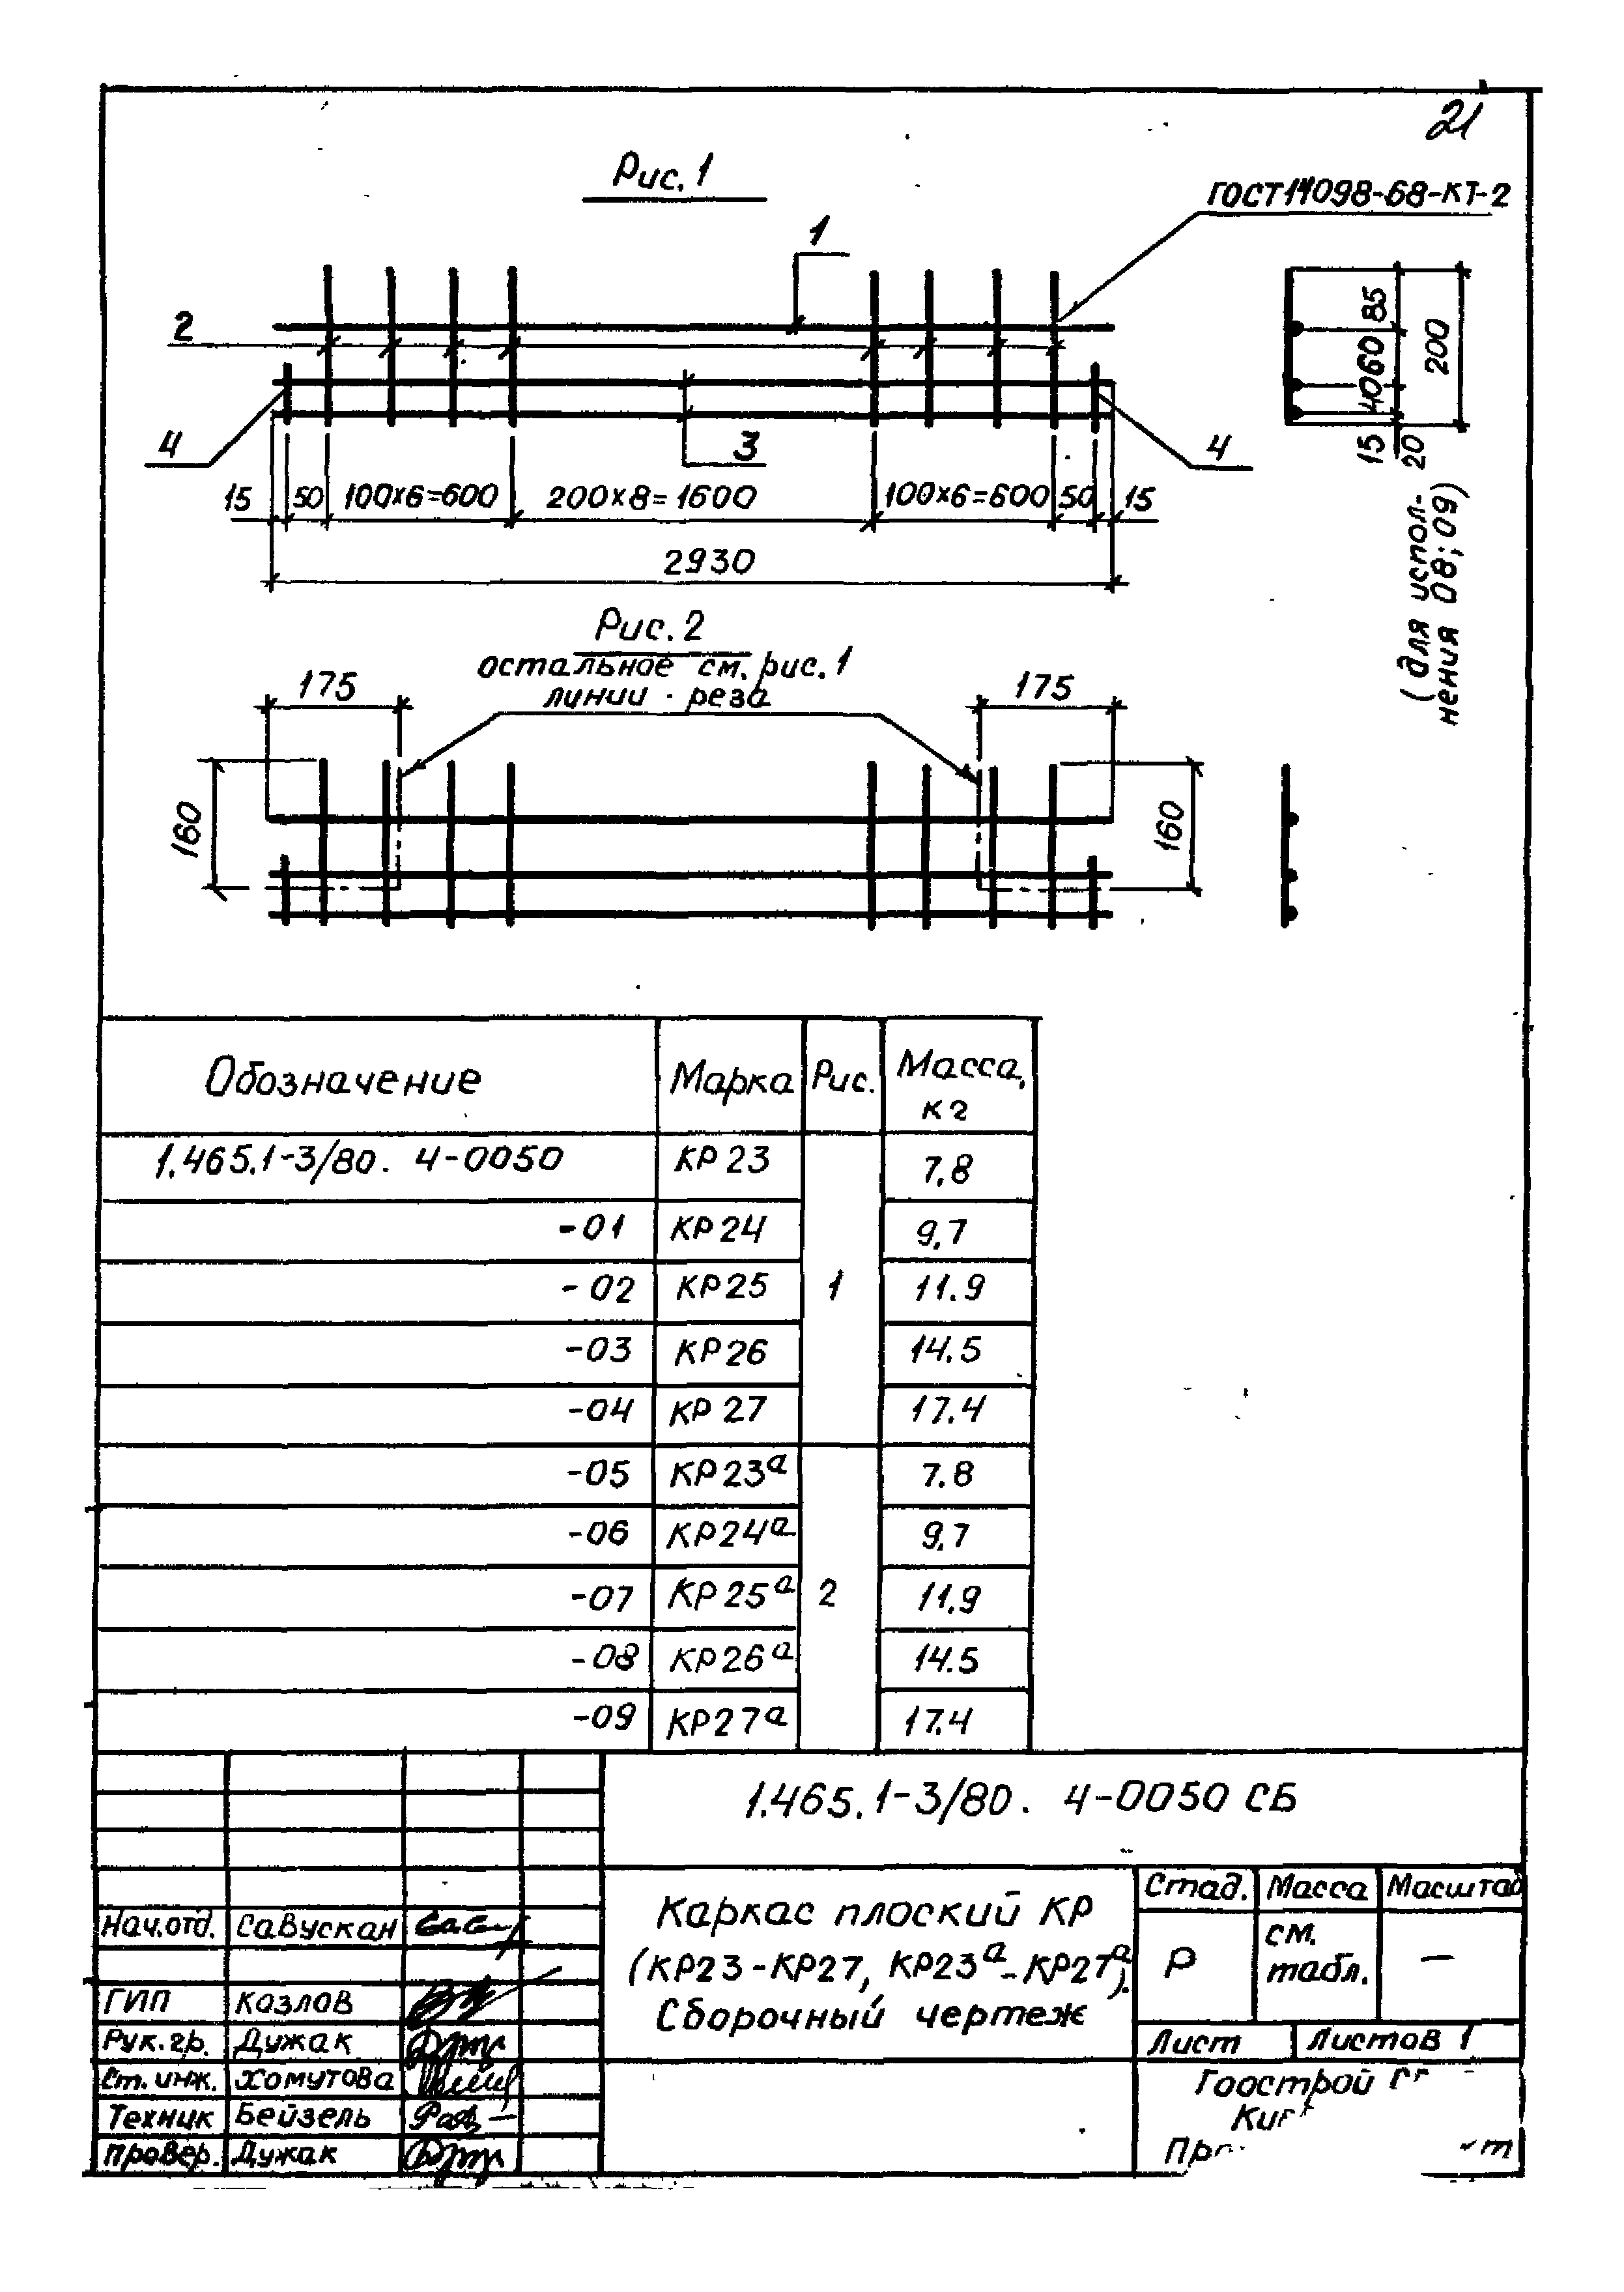 21
Рис. 1
ГОСТ 14098-68-КТ-2
1
2
4
3
4
15 50 100х6=600 200х8=1600 100х6=600 50 15
2930
85
60
40
15
20
200
(для испол-
нения 08; 09)
Рис. 2
остальное см. рис. 1
линии реза
175
175
160
160
Обозначение Марка Рис. Масса, кг
1.465.1-3/80. 4-0050 КР23 7,8
-01 КР24 9,7
-02 КР25 1 11.9
-03 КР26 14.5
-04 КР27 17.4
-05 КР23а 7.8
-06 КР24а 9,7
-07 КР25а 2 11.9
-08 КР26а 14.5
-09 КР27а 17.4
1.465.1-3/80. 4-0050 СБ
Каркас плоский КР
(КР23-КР27, КР23а-КР27а).
Сборочный чертеж
Стад. Масса Масштаб
Р см. табл. —
Лист Листов 1
Нач.отд. Савускан
ГИП Козлов
Рук.гр. Дужак
Ст.инж. Хомутова
Техник Бейзель
Провер. Дужак